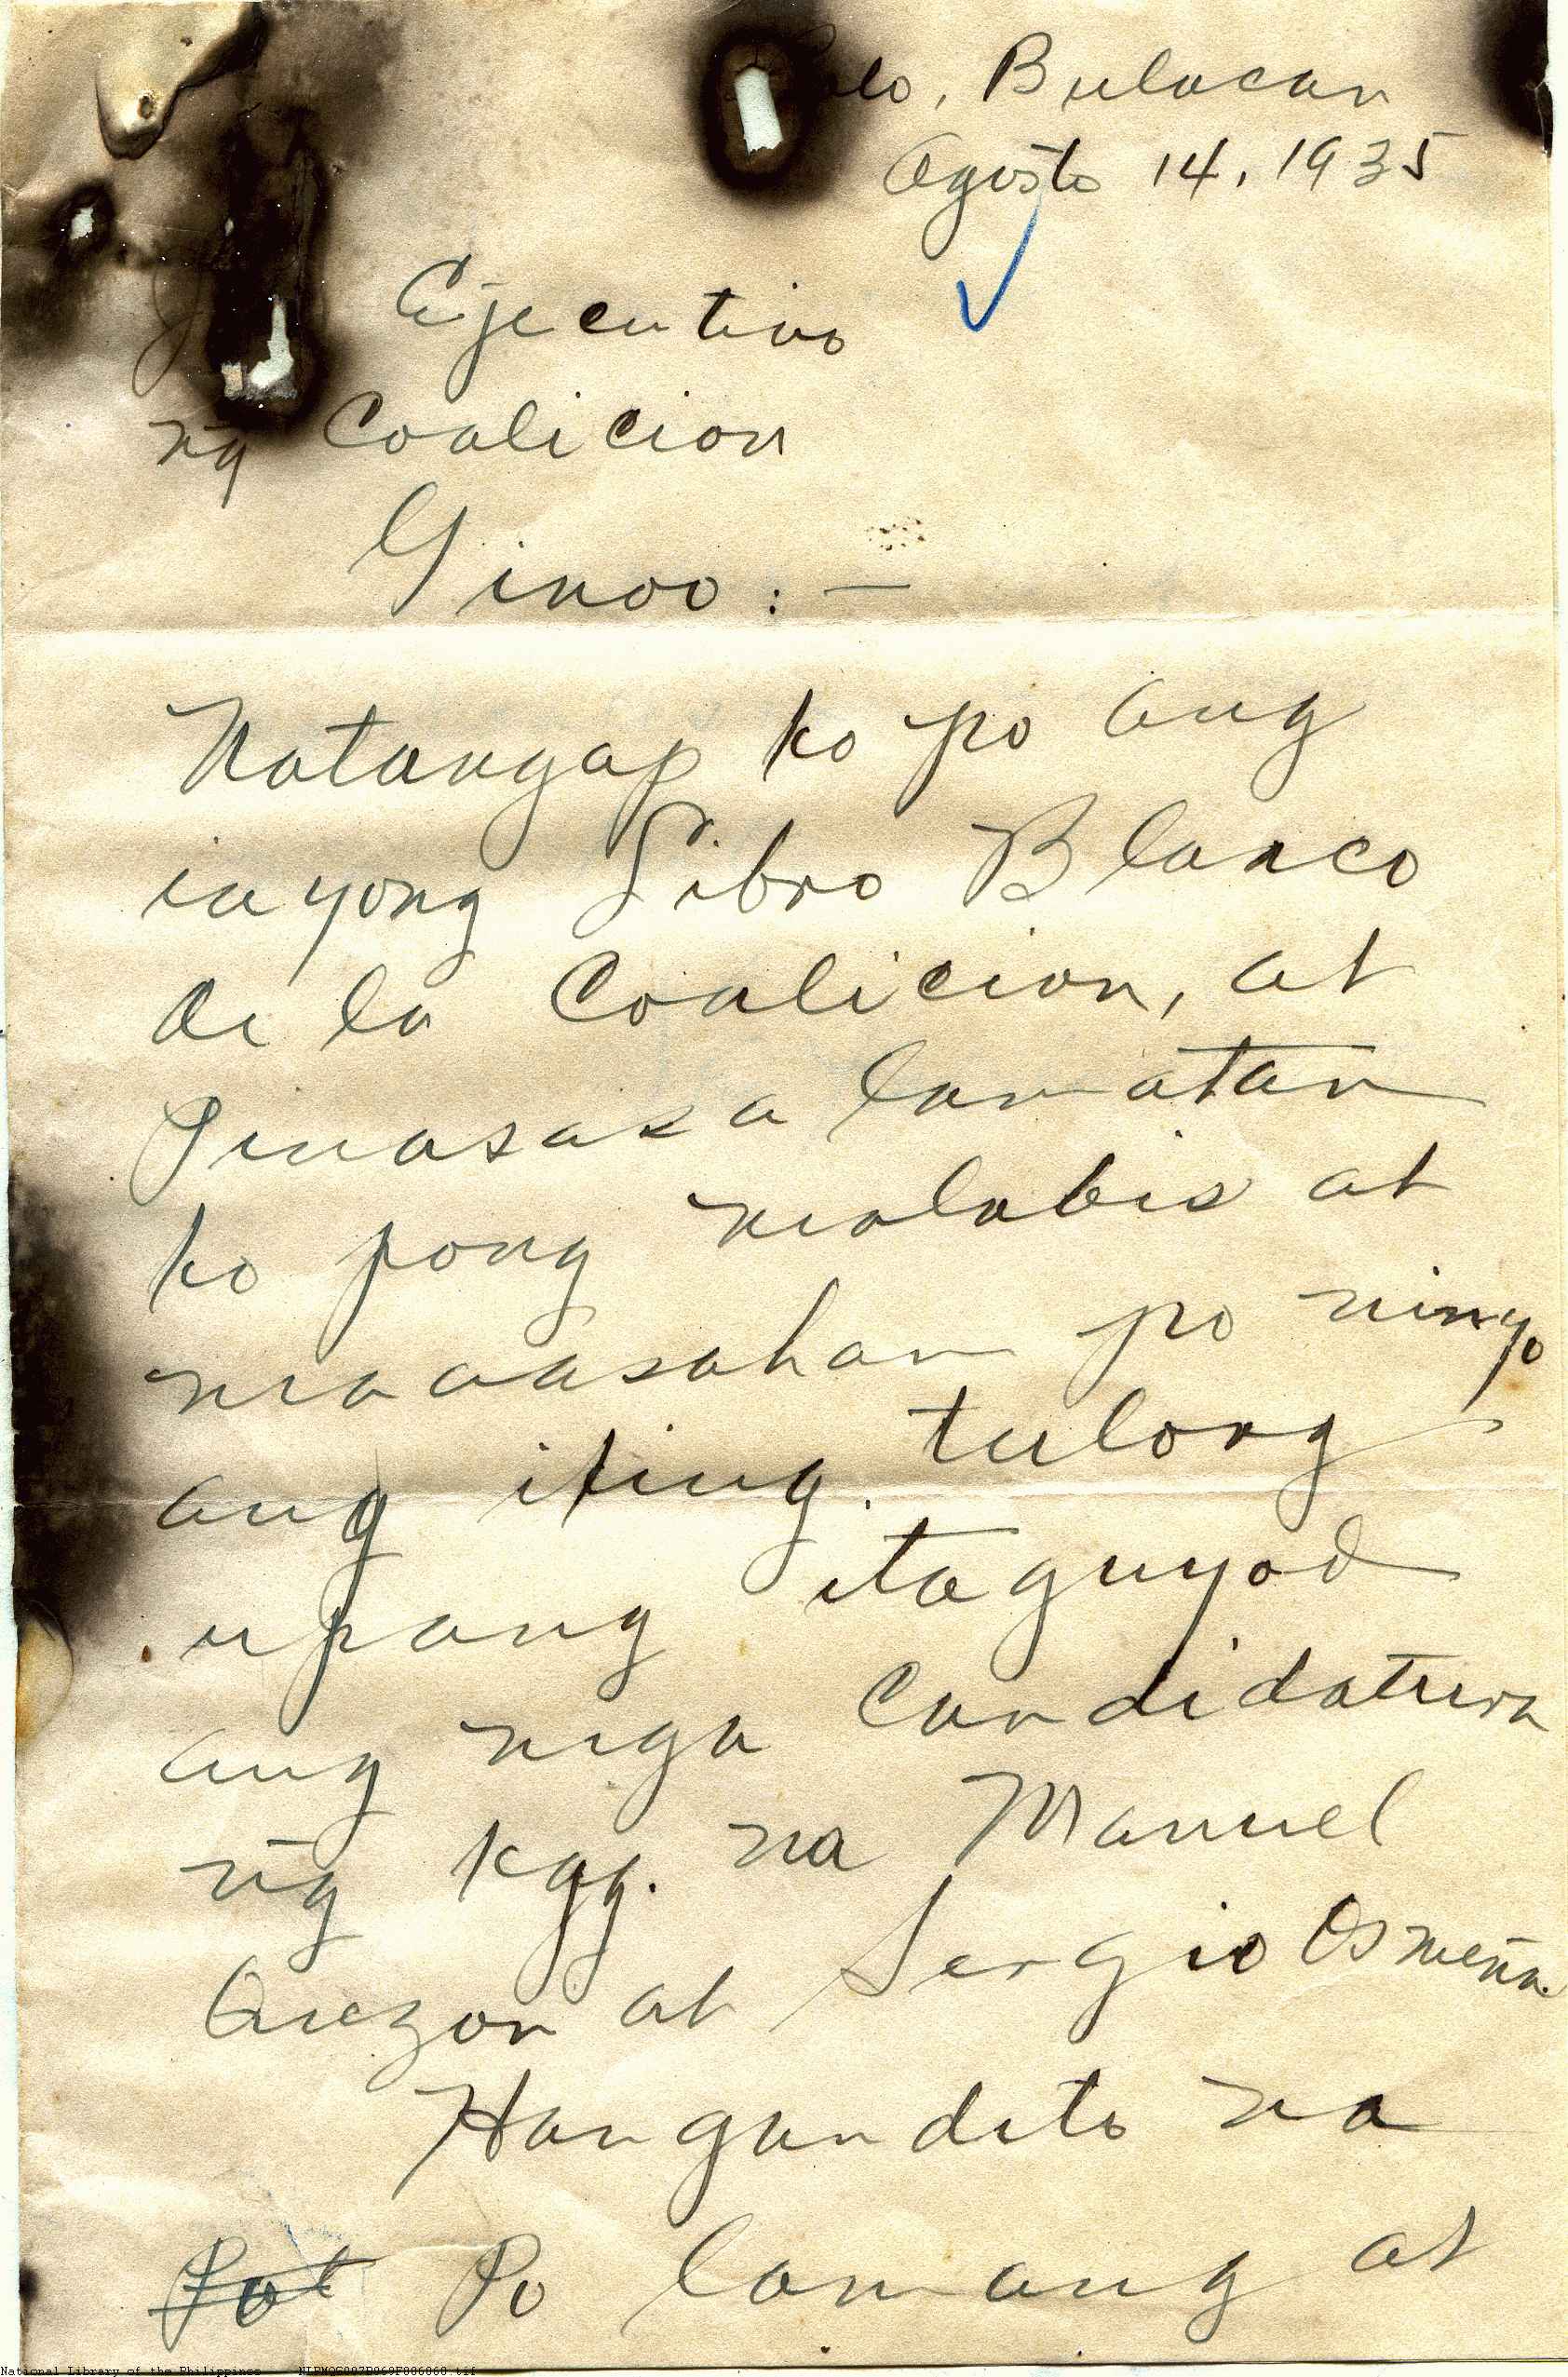 Bulacan
Agosto 14, 1935
Ejecutivo
ng̃ Coalicion
Ginoo : —
Natangap ko po ang
inyong Libro Blanco
de la Coalicion, at
Pinasasalamatan
ko pong malabis at
maaasahan po ninyo
ang iting tulong
upang itaguyod
ang mga Candidatura
ng̃ Kgg. na Manuel
Quezon at Sergio Osmeña.
Hangan dito na
Po lamang at
National Library of the Philippines